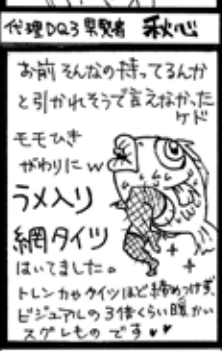 代理DQ3男賢者 秋心
お前そんなの持ってるんか
と引かれそうで言えなかった
ケド
モモひき
がわりにw
ラメ入り
網タイツ
はいてました。
トレンカやタイツほど締めつけず、
ビジュアルの3倍くらい暖かい
スグレものです♥♥